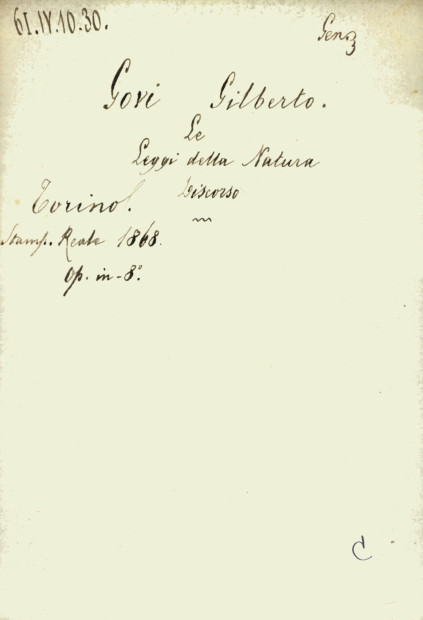 61.IV.10.30.
Govi Gilberto.
Le
Leggi della Natura
Discorso
Torino.
Stamp. Reale 1868.
Op. in-8°.
C